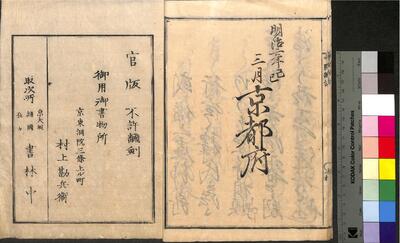 明治二年己巳
三月
京都府
官版 不許飜刻
御用御書物所
京東洞院三條上ル町
村上勘兵衞
取次所
書林中
KODAK Color Control Patches